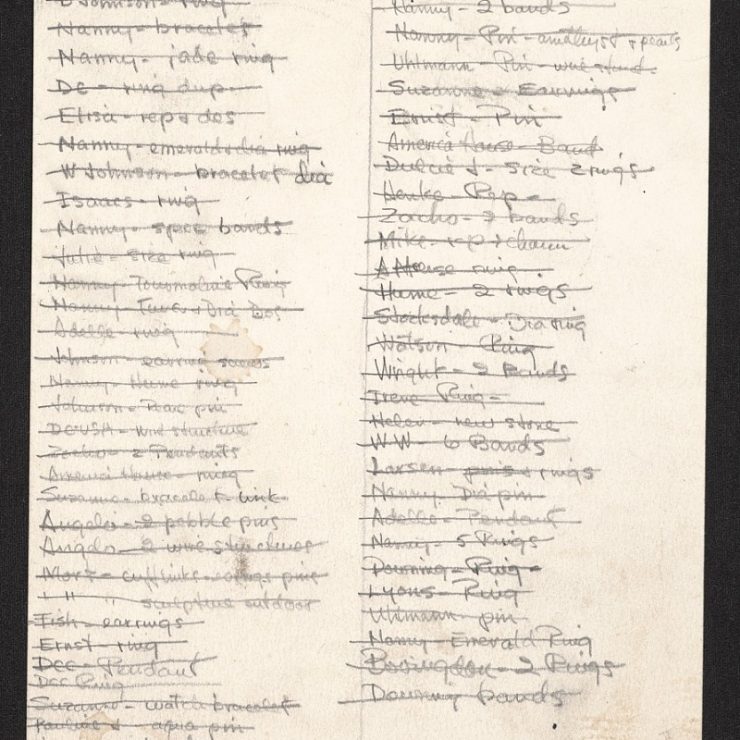 D Johnson - ring
Nanny - bracelet
Nanny - jade ring
DC - ring dup.
Elisa - rep + des
Nanny - emerald + dia ring
W Johnson - bracelet dia
Isaacs - ring
Nanny - space bands
Julie - size ring
Nanny - Tourmaline Ring
Nanny - Dia
Adelle - ring
Johnson - earring
Nanny - Hume ring
Johnson - pin
DCUSA - wire structure
Zacho - 2 Pendants
America House - ring
Suzanne - bracelet link
Angelo - 2 pebble pins
Angelo - 2 wire structures
Mort - cufflinks - earrings pins
" " sculpture outdoor
Fish - earrings
Ernst - ring
Dec - Pendant
Dec Ring
Suzanne - watch bracelet
Pauline J - aqua pin
Nanny - 2 bands
Nanny - Pin - amethyst + pearls
Uhlmann - Pin - wire
Suzanne - Earrings
Ernst - Pin
America House - Band
Dulcie J - size 2 rings
Henke - Rep -
Zacho - 2 bands
Mike - rep + chain
A House ring
Hume - 2 rings
Stocksdale - Dia ring
Watson - Ring
Wright - 2 Bands
Irene Ring -
Helen - new stone
WW - 6 Bands
Larsen - pins + rings
Nanny Dia pin
Adelle - Pendant
Nanny - 5 Rings
Downing - Ring -
Lyons - Ring
Uhlmann - pin
Nanny - Emerald Ring
- 2 Rings
Downing bands